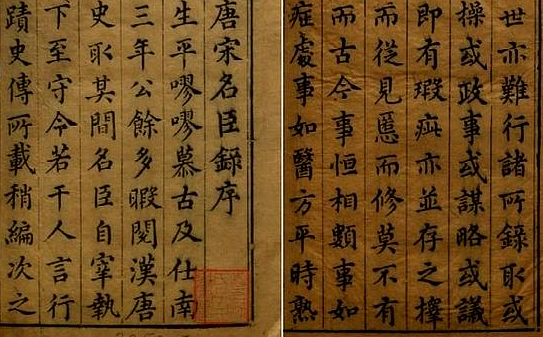 唐宋名臣錄序
生平嘐嘐慕古及仕南
三年公餘多暇閱漢唐
史取其間名臣自宰執
下至守令若干人言行
蹟史傳所載稍編次之
世亦難行諸所錄取或
操或政事或謀略或議
即有瑕疵亦並存之擇
而從見慝而修莫不有
而古今事恒相類事如
症處事如醫方平時熟